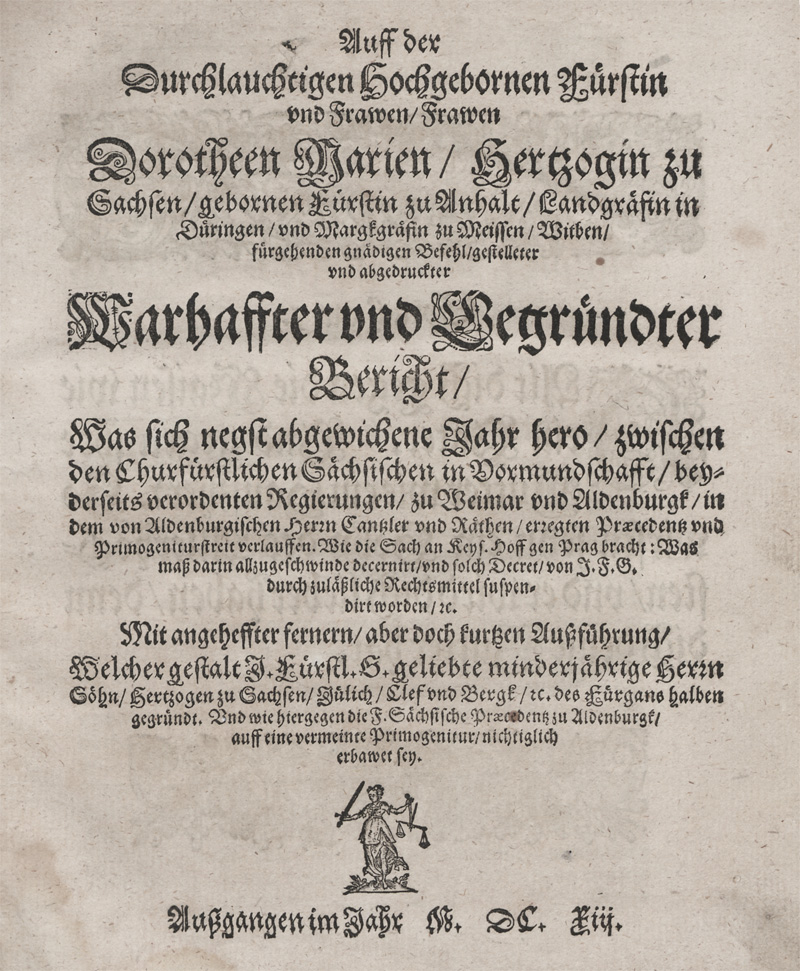 Auff der
Durchlauchtigen Hochgebornen Fürstin
vnd Frawen/ Frawen
Dorotheen Marien/ Hertzogin zu
Sachsen/ gebornen Fürstin zu Anhalt/ Landgräfin in
Düringen/ vnd Margkgräfin zu Meissen/ Witben/
fürgehenden gnädigen Befehl/ gestelleter
vnd abgedruckter
Warhaffter vnd Gegründter
Bericht/
Was sich negst abgewichene Jahr hero/ zwischen
den Churfürstlichen Sächsischen in Vormundschafft/ bey-
derseits verordenten Regierungen/ zu Weimar vnd Aldenburgk/ in
dem von Aldenburgischen Herrn Cantzler vnd Räthen/ erregten Præcedentz vnd
Primogeniturstreit verlauffen. Wie die Sach an Keys. Hoff gen Prag bracht: Was
maß darin allzugeschwinde decernirt/ vnd solch Decret/ von J. F. G.
durch zuläßliche Rechtsmittel suspen-
dirt worden/ ꝛc.
Mit angeheffter fernern/ aber doch kurtzen Außführung/
Welcher gestalt J. Fürstl. G. geliebte minderjährige Herrn
Söhn/ Hertzogen zu Sachsen/ Jülich/ Clef vnd Bergk/ ꝛc. des Fürgans halben
gegründt. Vnd wie hiergegen die F. Sächsische Præcedentz zu Aldenburgk/
auff eine vermeinte Primogenitur/ nichtiglich
erbawet sey.
Außgangen im Jahr M. DC. Xiij.